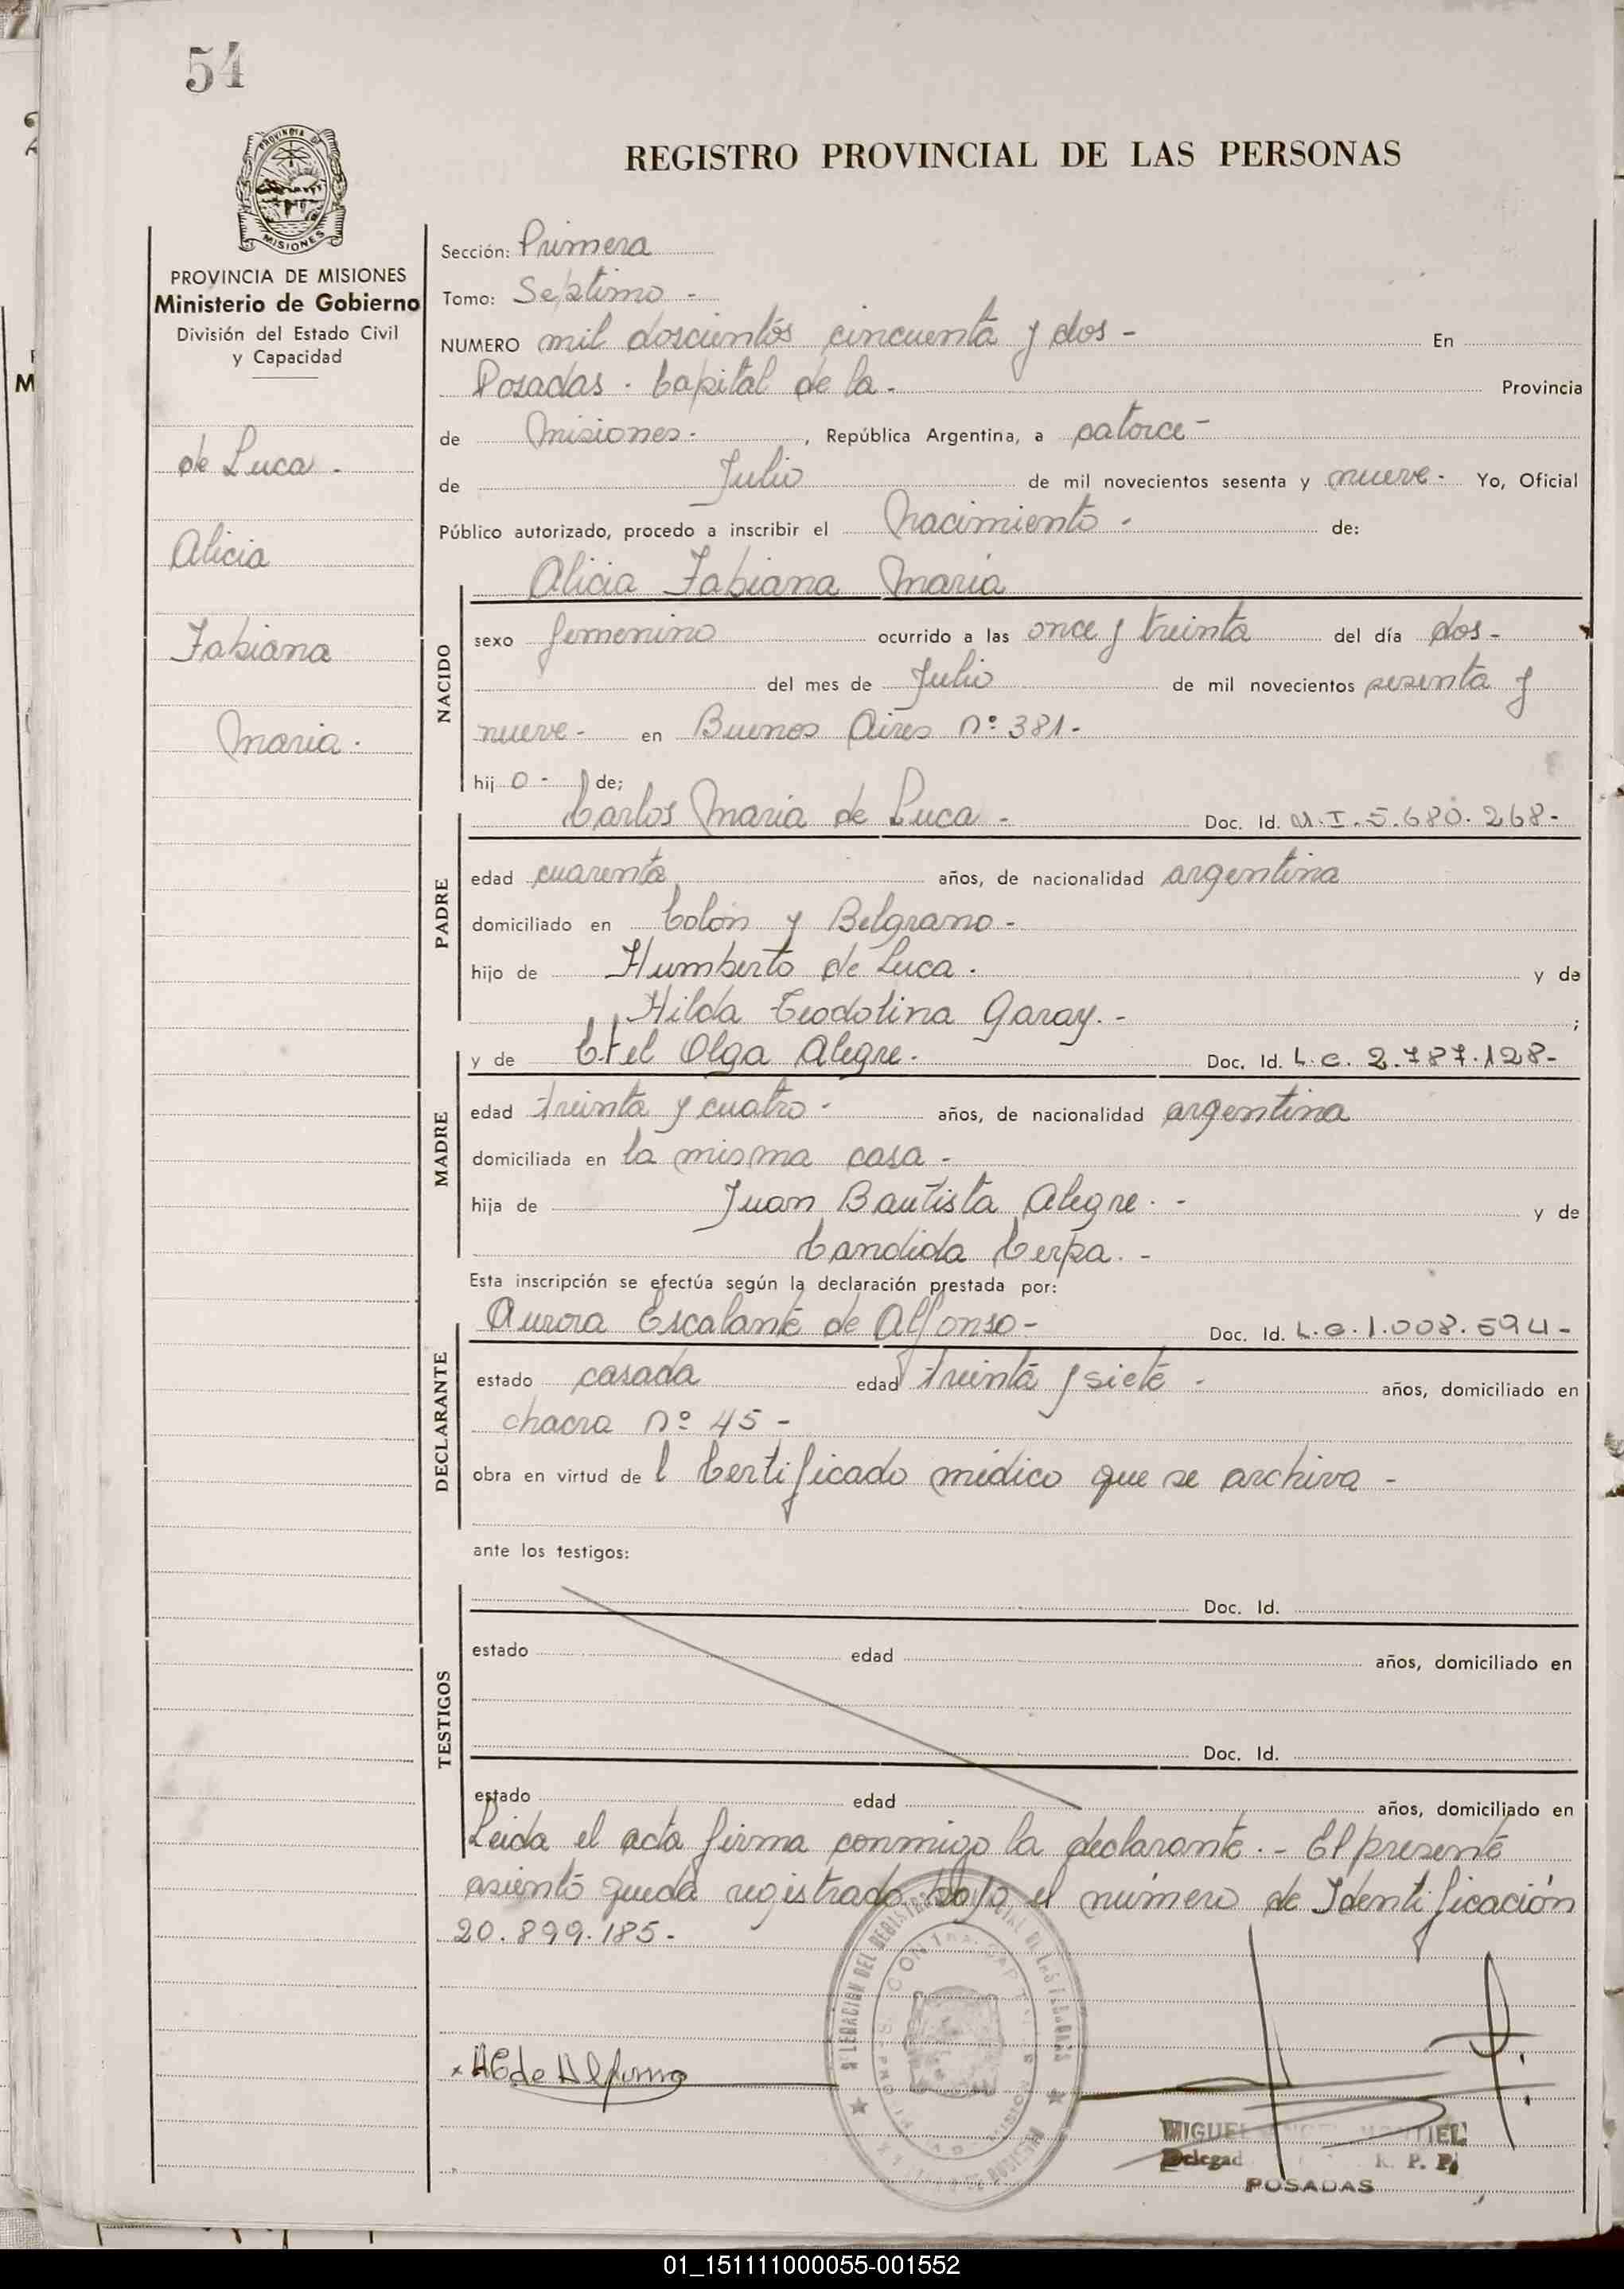 54
REGISTRO PROVINCIAL DE LAS PERSONAS
PROVINCIA DE MISIONES
Ministerio de Gobierno
División del Estado Civil
y Capacidad
de Luca -
Alicia
Fabiana
Maria.
Sección: Primera
Tomo: Septimo -
NUMERO mil doscientos cincuenta y dos - En
Posadas. Capital de la - Provincia
de Misiones. , República Argentina, a catorce -
de Julio de mil novecientos sesenta y nueve - Yo, Oficial
Público autorizado, procedo a inscribir el Nacimiento - de:
Alicia Fabiana Maria
NACIDO
sexo femenino ocurrido a las once y treinta del día dos -
del mes de Julio de mil novecientos sesenta y
nueve - en Buenos Aires Nº 381 -
hij o - de;
Carlos Maria de Luca - Doc. Id. M.I. 5.680.268-
PADRE
edad cuarenta años, de nacionalidad argentina
domiciliado en Colón y Belgrano -
hijo de Humberto de Luca. y de
Hilda Teodolina Garay. - ;
y de Etel Olga Alegre. Doc. Id. L.C. 2.787.128-
MADRE
edad treinta y cuatro - años, de nacionalidad argentina
domiciliada en la misma casa -
hija de Juan Bautista Alegre. - y de
Candida Cerpa. -
Esta inscripción se efectúa según la declaración prestada por:
Aurora Escalante de Alfonso - Doc. Id. L.C. 1.008.594-
DECLARANTE
estado casada edad treinta y siete - años, domiciliado en
chacra Nº 45 -
obra en virtud de l Certificado médico que se archiva -
ante los testigos:
TESTIGOS
Doc. Id.
estado edad años, domiciliado en
Doc. Id.
estado edad años, domiciliado en
Leida el acta firma conmigo la declarante. - El presente
asiento queda registrado bajo el número de Identificación
20.899.185-
x AEde Alfonso
MIGUEL MONTIEL
Delegad R. P. P.
POSADAS
01_151111000055-001552